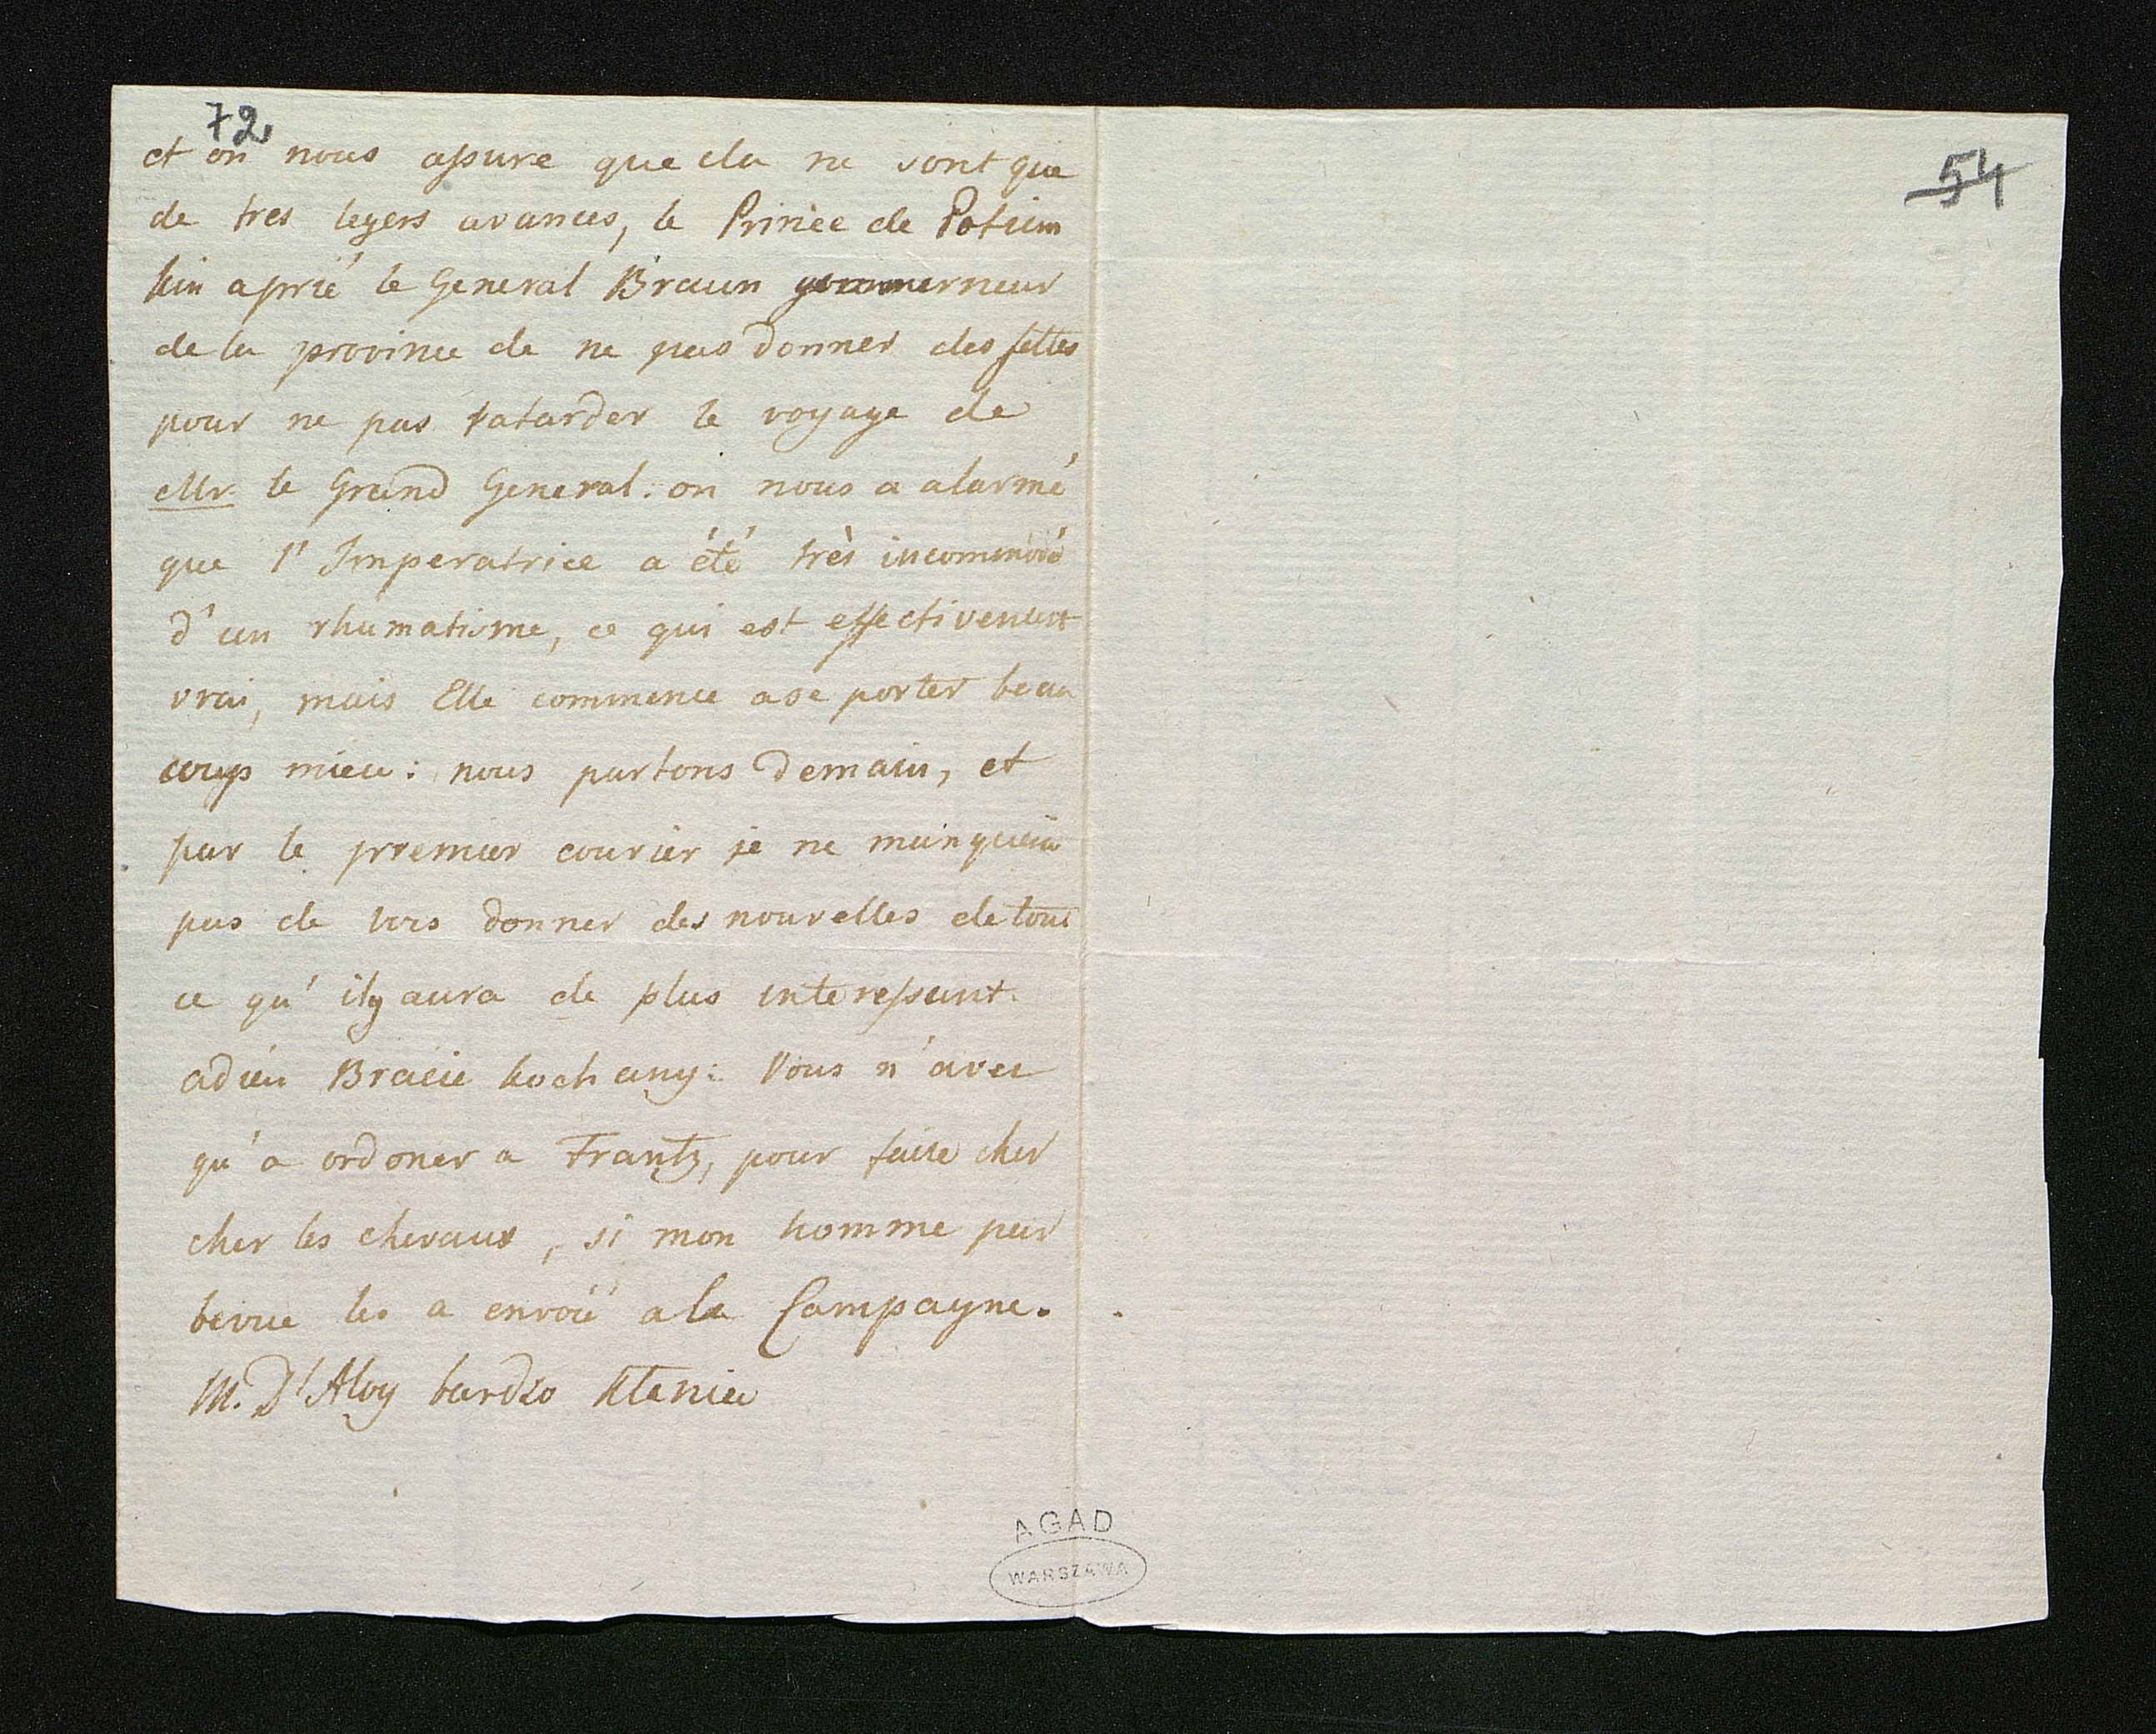 72
54
et on nous assure que cla ne sont que
de tres legers avances, le Prince de Potiem
kin a prié le General Braun gouverneur
de la province de ne pas donner des fettes
pour ne pas ratarder le voyage de
Mr. le Grand General. on nous a alarmé
que l'Imperatrice a été très incommodé
d'un rhumatisme, ce qui est effectivement
vrai, mais Elle commence a se porter beau
coups mieu: nous partons demain, et
par le premier courier je ne manquera
pas de vous donner des nouvelles de tout
ce qu' il y aura de plus interessant.
adieu Bracie kochany: Vous n'avez
qu'a ordoner a Frantz, pour faire cher
cher les chevaux, si mon homme par
bevue les a envoié a la Campagne.
M. D'Aloy bardzo kłania
AGAD
WARSZAWA